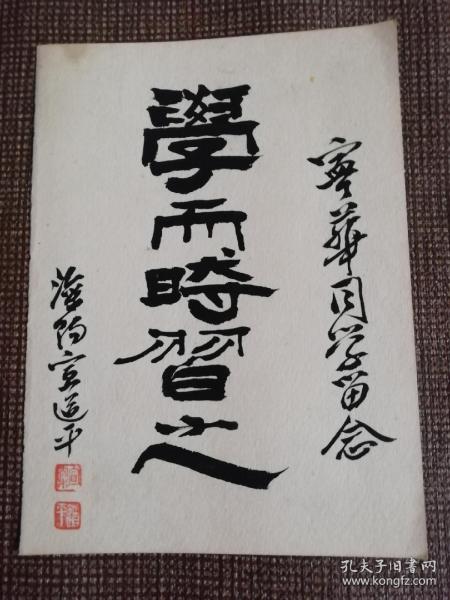 寄華同学留念
學而時習之
海陽宣道平
孔夫子旧书网
www.kongfz.com